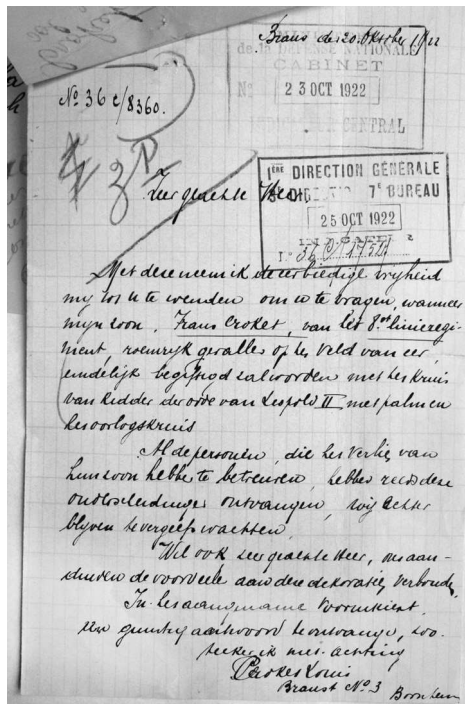 Braust den 20 Oktober 1922
DÉFENSE NATIONALE
CABINET
N°
23 OCT 1922
CENTRAL
N° 36 c/8360.
1ÈRE DIRECTION GÉNÉRALE
7E BUREAU
25 OCT 1922
Zeer geachte Heer
Met deze neem ik de eerbiedige vrijheid
mij tot U te wenden om U te vragen, wanneer
mijn zoon, Frans Croket, van het 8ste linieregi-
ment, roemrijk gevallen op het veld van eer,
eindelijk begiftigd zal worden met het kruis
van Ridder der orde van Leopold II met palm en
het oorlogskruis
Al de personen, die het verlies van
hun zoon hebben te betreuren, hebben reeds deze
onderscheidingen ontvangen, wij echter
blijven te vergeefs wachten.
Wil ook zeer geachte Heer, ons aan-
duiden de voordeele aan deze dekoratie verbonden.
In het aangename vooruitzicht,
een gunstig antwoord te ontvangen, zoo
teeken ik met achting
Croket Louis
Braust N° 3 Bornhem